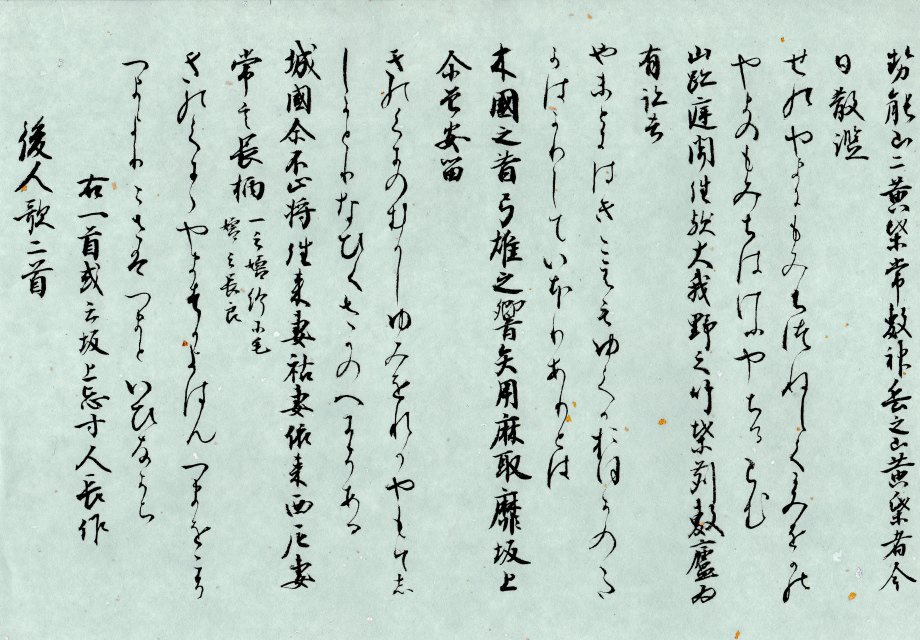 勢能山二黄葉常敷神岳之山黄葉者今
日散濫
せのやまにもみちつねしくかみをかの
やまのもみちはけふやちるらむ
山跡庭聞徃歟大我野之竹葉苅敷廬為
有跡者
やまとにはきこえもゆくかおほかのゝた
かはかりしていほりありとは
木國之昔弓雄之響矢用麻取靡坂上
尓曽安留
きのくにのむかしゆみをのなるやもて
しかとりなひくさかのへにそある
城國尓不止将徃来妻祜妻依来西尼妻
常言長柄 一云嬬給尓毛
嬬云長良
きのくにゝやますかよはんつまをこそ
つまよりこさねつまといひなから
右一首或云坂上忌寸人長作
後人歌二首